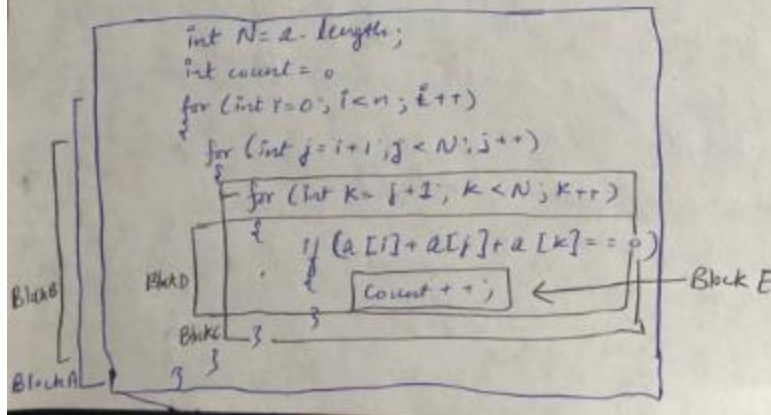 int N = a. length;
int count = 0
for (int i=0; i<n; i++)
{
for (int j = i+1; j < N; j++)
{
for (int k= j+1; k < N; k++)
{
if (a[i]+a[j]+a[k]== 0)
{
count++;
Block E
}
Block D
Block B
Block C
}
}
Block A
}